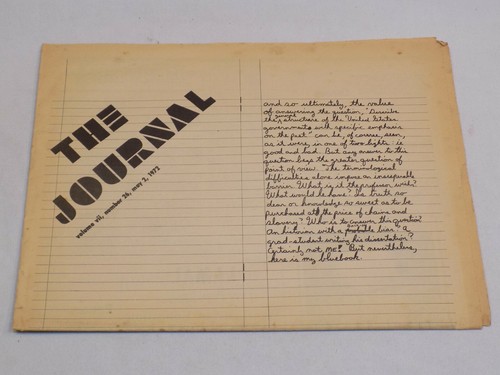 THE
JOURNAL
volume vii, number 26, may 2, 1972
and so ultimately, the value
of answering the question, "Describe
the structure of the United States
government with specific emphasis
on the past" can be, of course, seen,
as it were, in one of two lights - is
good and bad. But any answer to this
question begs the greater question of
point of view. The terminological
difficulties alone impose an inseparable
barrier. What is it the professor wants?
What would he have? Is truth so
dear or knowledge so sweet as to be
purchased at the price of chains and
slavery? Who is to answer this question?
An historian with a probable bias? a
grad-student writing his dissertation?
Certainly not, me! But nevertheless,
here is my bluebook